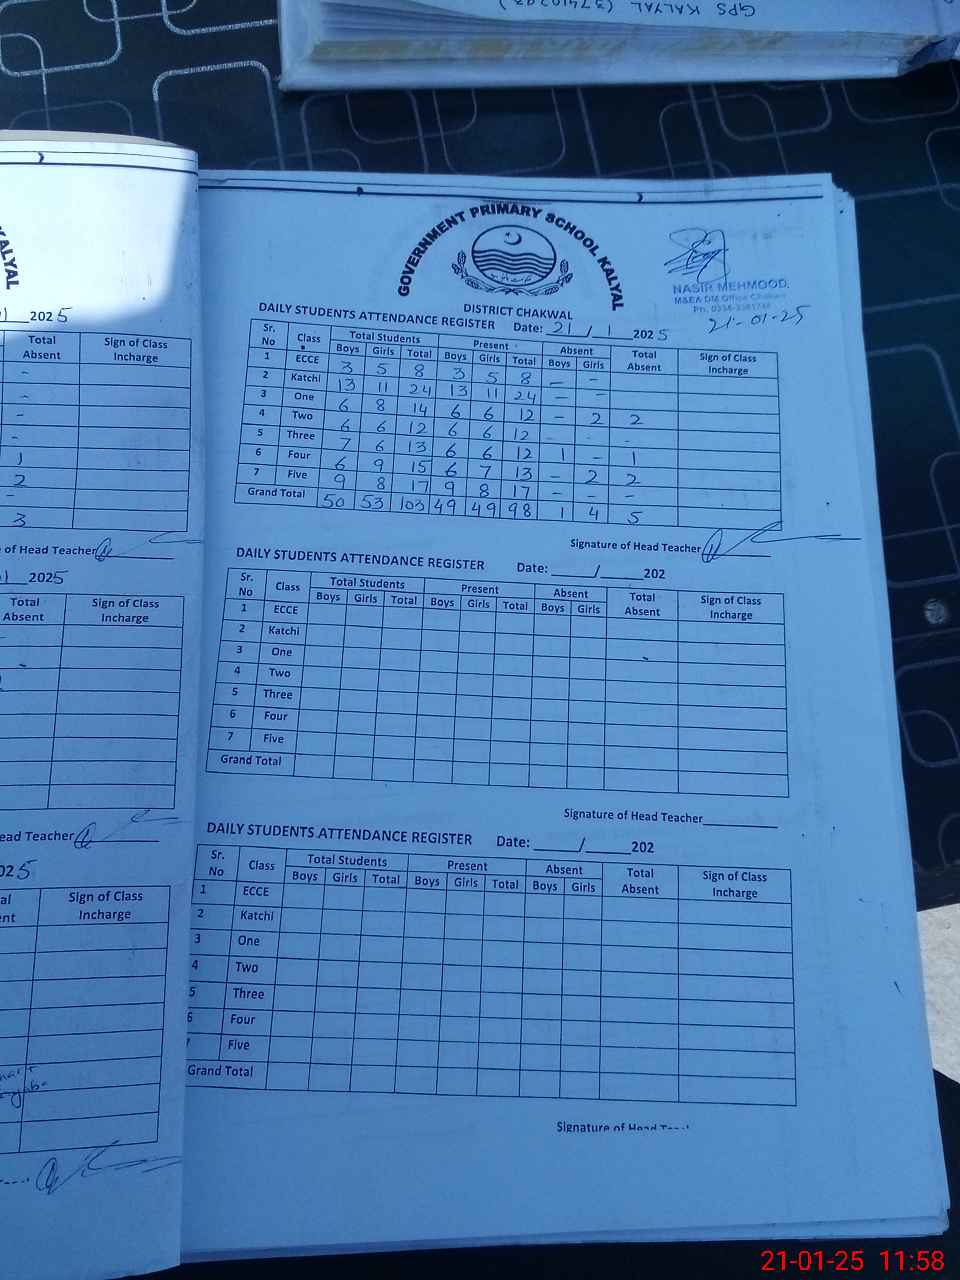 GPS KALYAL (37410293)
KALYAL
2025
Total Absent Sign of Class Incharge
-
-
-
-
1
2
-
3
of Head Teacher
2025
Total Absent Sign of Class Incharge
ead Teacher
025
Sign of Class Incharge
GOVERNMENT PRIMARY SCHOOL KALYAL
DISTRICT CHAKWAL
NASIR MEHMOOD
M&EA DM Office Chakwal
21-01-25
DAILY STUDENTS ATTENDANCE REGISTER Date: 21 / 1 2025
Sr. No Class Total Students Present Absent Total Absent Sign of Class Incharge
Boys Girls Total Boys Girls Total Boys Girls
1 ECCE 3 5 8 3 5 8 - -
2 Katchi 13 11 24 13 11 24 - -
3 One 6 8 14 6 6 12 - 2 2
4 Two 6 6 12 6 6 12 - - -
5 Three 7 6 13 6 6 12 1 - 1
6 Four 6 9 15 6 7 13 - 2 2
7 Five 9 8 17 9 8 17 - - -
Grand Total 50 53 103 49 49 98 1 4 5
Signature of Head Teacher
DAILY STUDENTS ATTENDANCE REGISTER Date: _____/_____202
Sr. No Class Total Students Present Absent Total Absent Sign of Class Incharge
Boys Girls Total Boys Girls Total Boys Girls
1 ECCE
2 Katchi
3 One
4 Two
5 Three
6 Four
7 Five
Grand Total
Signature of Head Teacher
DAILY STUDENTS ATTENDANCE REGISTER Date: _____/_____202
Sr. No Class Total Students Present Absent Total Absent Sign of Class Incharge
Boys Girls Total Boys Girls Total Boys Girls
1 ECCE
2 Katchi
3 One
4 Two
5 Three
6 Four
7 Five
Grand Total
Signature of Head
21-01-25 11:58